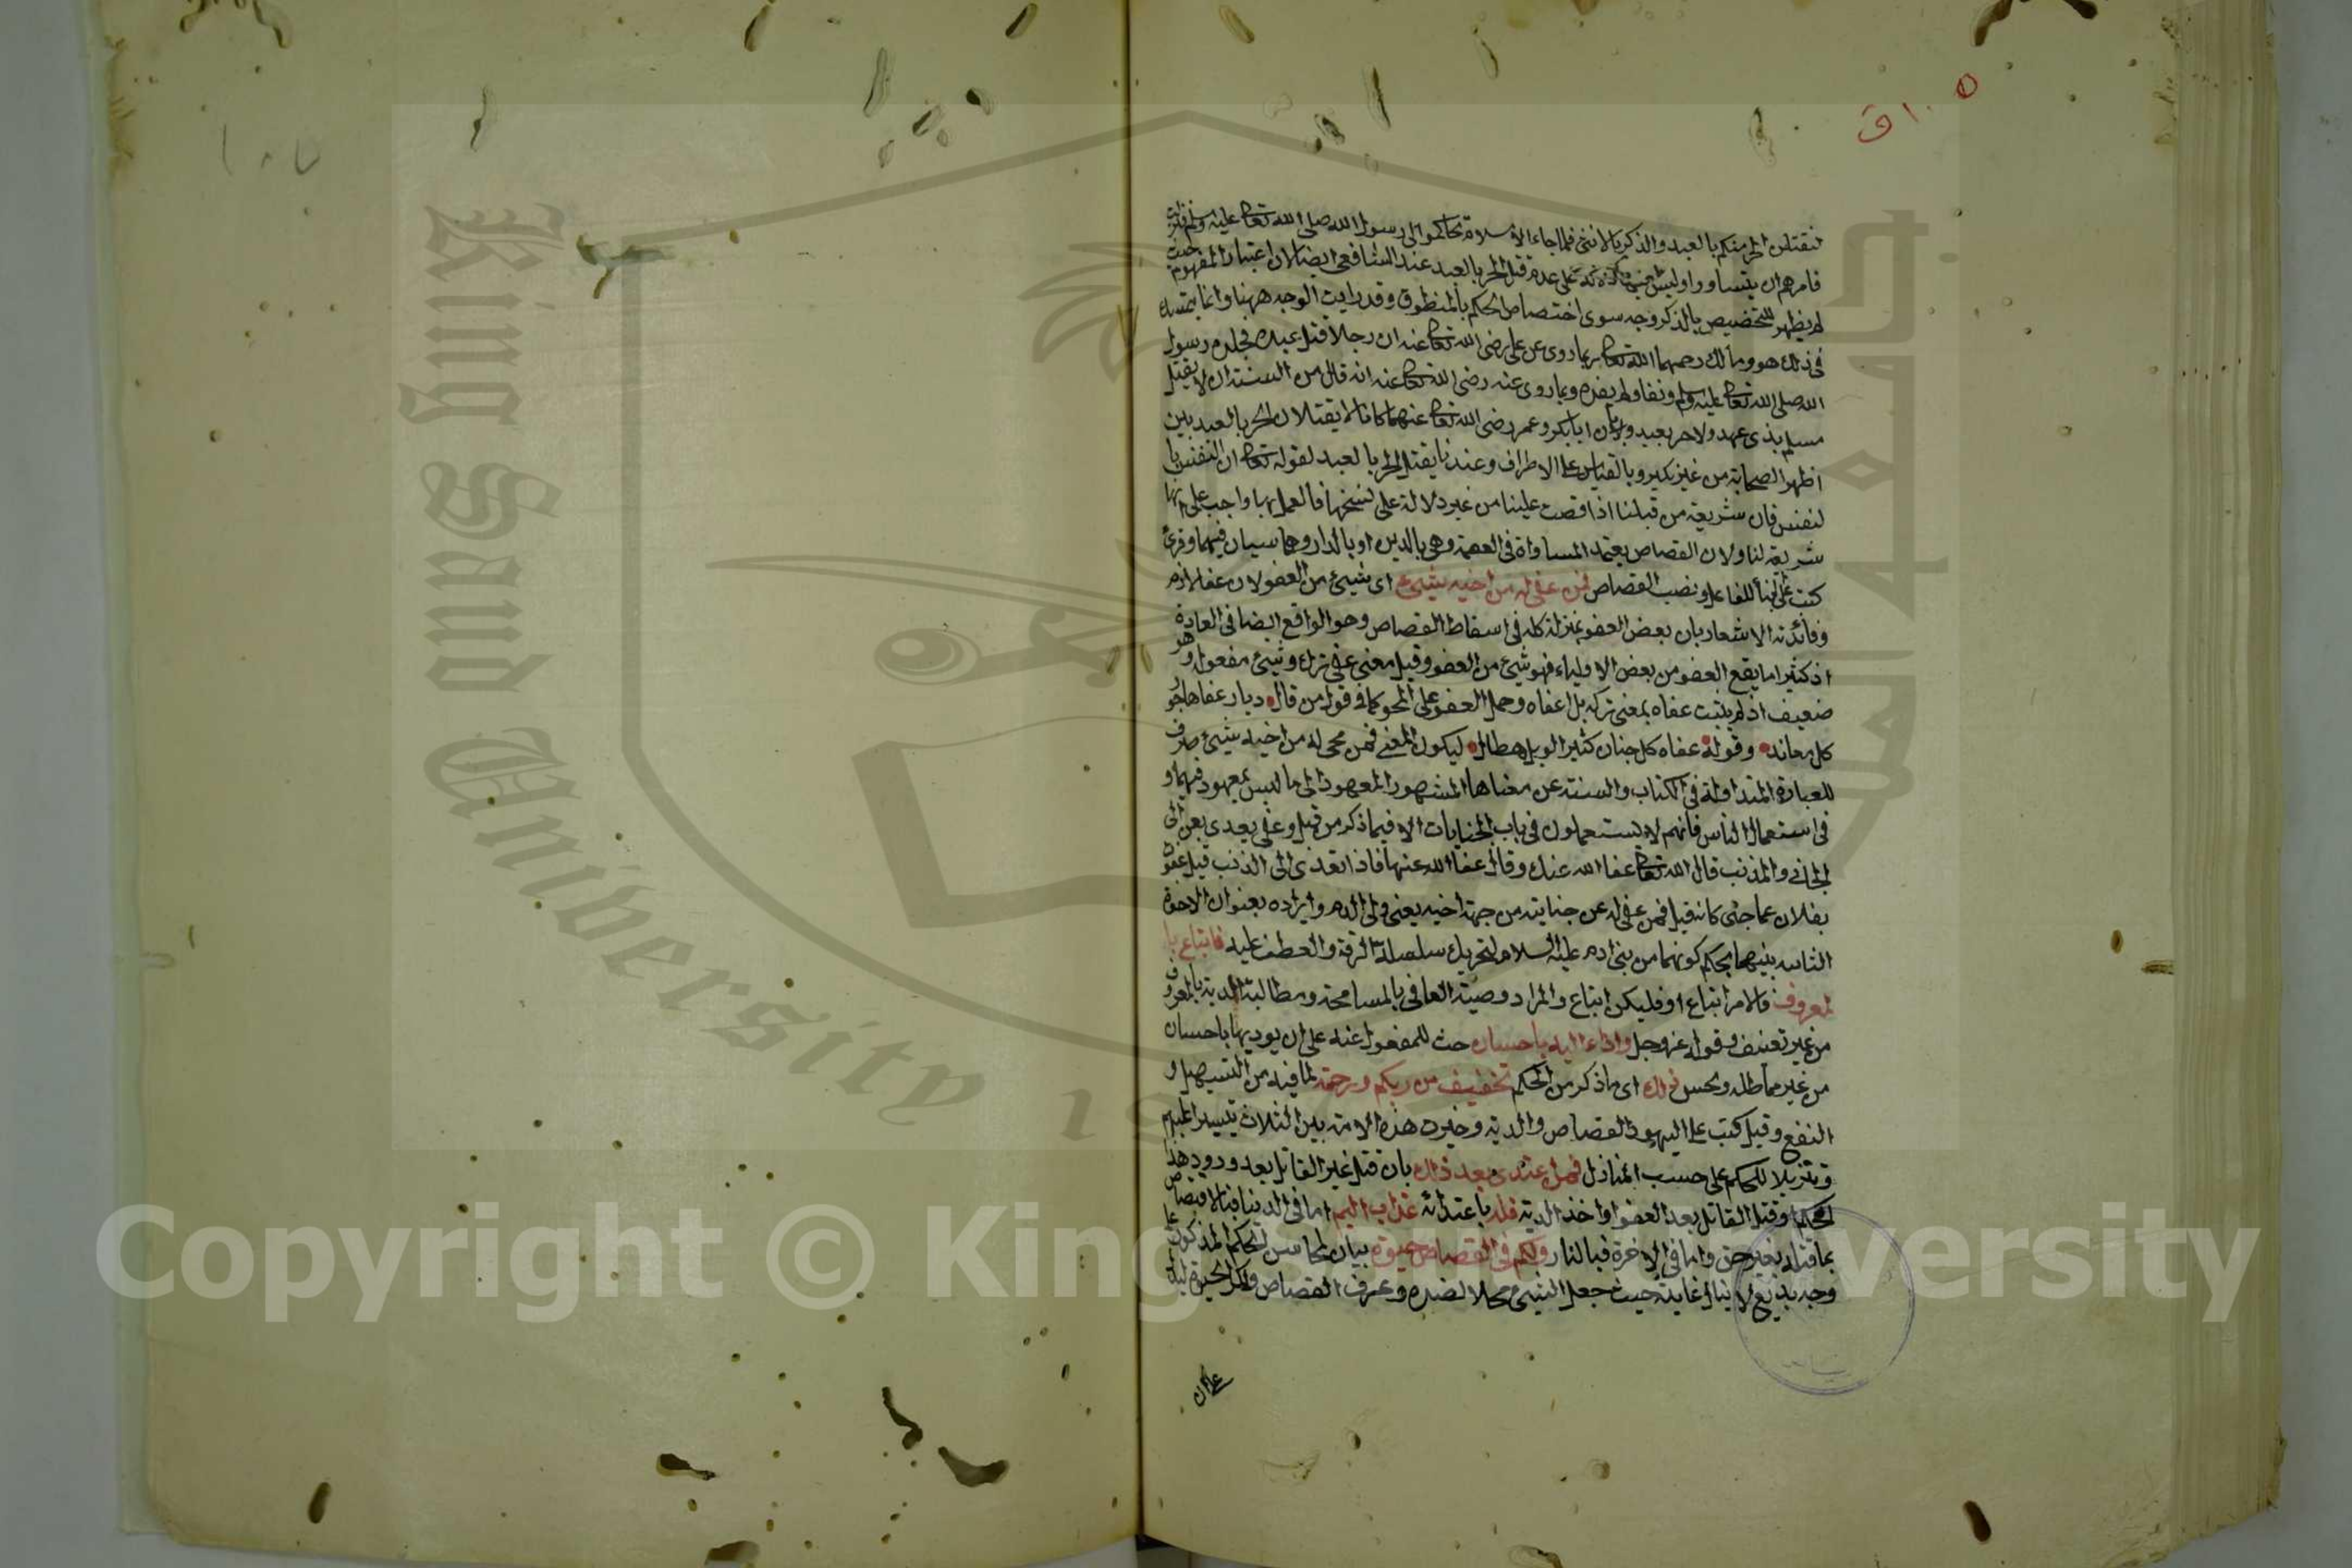 ١٠٥ ق
لنقتلن الحر منكم بالعبد والذكر بالانثى فلما جاء الاسلام تحاكموا الى رسول الله صلى الله تعالى عليه وسلم فنزلت
فامرهم ان يتساووا وليس فيها دلالة على عدم قتل الحر بالعبد عند الشافعي ايضا لان اعتبار المفهوم حيث
لم يظهر للتخصيص بالذكر وجه سوى اختصاص الحكم بالمنطوق وقد رايت الوجه ههنا وانما يتمسك
في ذلك هو ومالك رحمهما الله تعالى بما روى عن علي رضى الله تعالى عنه ان رجلا قتل عبده فجلده رسول
الله صلى الله تعالى عليه وسلم ونفاه ولم يقده وبما روى عنه رضى الله تعالى عنه انه قال من السنة ان لا يقتل
مسلم بذى عهد ولا حر بعبد وبان ابا بكر وعمر رضى الله تعالى عنهما كانا لا يقتلان الحر بالعبد بين
اظهر الصحابة من غير نكير وبالقياس على الاطراف وعندنا يقتل الحر بالعبد لقوله تعالى ان النفس با
لنفس فان شريعة من قبلنا اذا قصت علينا من غير دلالة على نسخها فالعمل بها واجب على انها
شريعة لنا ولان القصاص يعتمد المساواة في العصمة وهي بالدين او بالدار وهما سيان فيهما وقرئ
كتب على البناء للفاعل ونصب القصاص فمن عفى له من اخيه شيئ اى شيئ من العفو لان عفا لازم
وفائدته الاشعار بان بعض العفو بمنزلة كله في اسقاط القصاص وهو الواقع ايضا في العادة
اذ كثيرا ما يقع العفو من بعض الاولياء فهو شيئ من العفو وقيل معنى عفى ترك وشيئ مفعول و هو
ضعيف اذ لم يثبت عفاه بمعنى تركه بل اعفاه وحمل العفو على المحو كما في قول من قال ديار عفاها جور
كل معاند وقوله عفاه كل حنان كثير الوبل هطال ليكون المعنى فمن محى له من اخيه شيئ صرف
للعبارة المتداولة في الكتاب والسنة عن معناها المشهور المعهود الى ما ليس بمعهود فيهما و
في استعمال الناس فانهم لا يستعملون في باب الجنايات الا فيما ذكر من قبل وعفى يعدى بعن الى
الجاني والمذنب قال الله تعالى عفا الله عنك وقال عفا الله عنها فاذا تعدى الى الذنب قيل عفوت
لفلان عما جنى كانه قيل فمن عفى له عن جنايته من جهة اخيه يعنى ولى الدم وايراده بعنوان الاخوة
الثابتة بينهما بحكم كونهما من بني ادم عليه السلام لتحريك سلسلة الرقة والعطف عليه فاتباع با
لمعروف فالامر اتباع او فليكن اتباع والمراد وصية العافى بالمسامحة ومطالبة الدية بالمعروف
من غير تعسف وقوله عز وجل واداء اليه باحسان حث للمعفو عنه على ان يوديها باحسان
من غير مماطلة وبخس ذلك اى ما ذكر من الحكم تخفيف من ربكم ورحمة لما فيه من التسهيل و
النفع وقيل كتب على اليهود القصاص والدية وخيرت هذه الامة بين الثلاث تيسيرا عليهم
وتنزيلا للحكم على حسب المنازل فمن اعتدى بعد ذلك بان قتل غير القاتل بعد ورود هذا
الحكم او قتل القاتل بعد العفو او اخذ الدية فله باعتدائه عذاب اليم اما في الدنيا فبالاقتصاص
بما قتله بغير حق واما في الاخرة فبالنار ولكم في القصاص حيوة بيان لمحاسن الحكم المذكور على
وجه بديع لا ينال غايته حيث جعل الشيئ محلا لضده وعرف القصاص ونكر الحيوة ليدل
على ان
King Saud University
Copyright © King Saud University